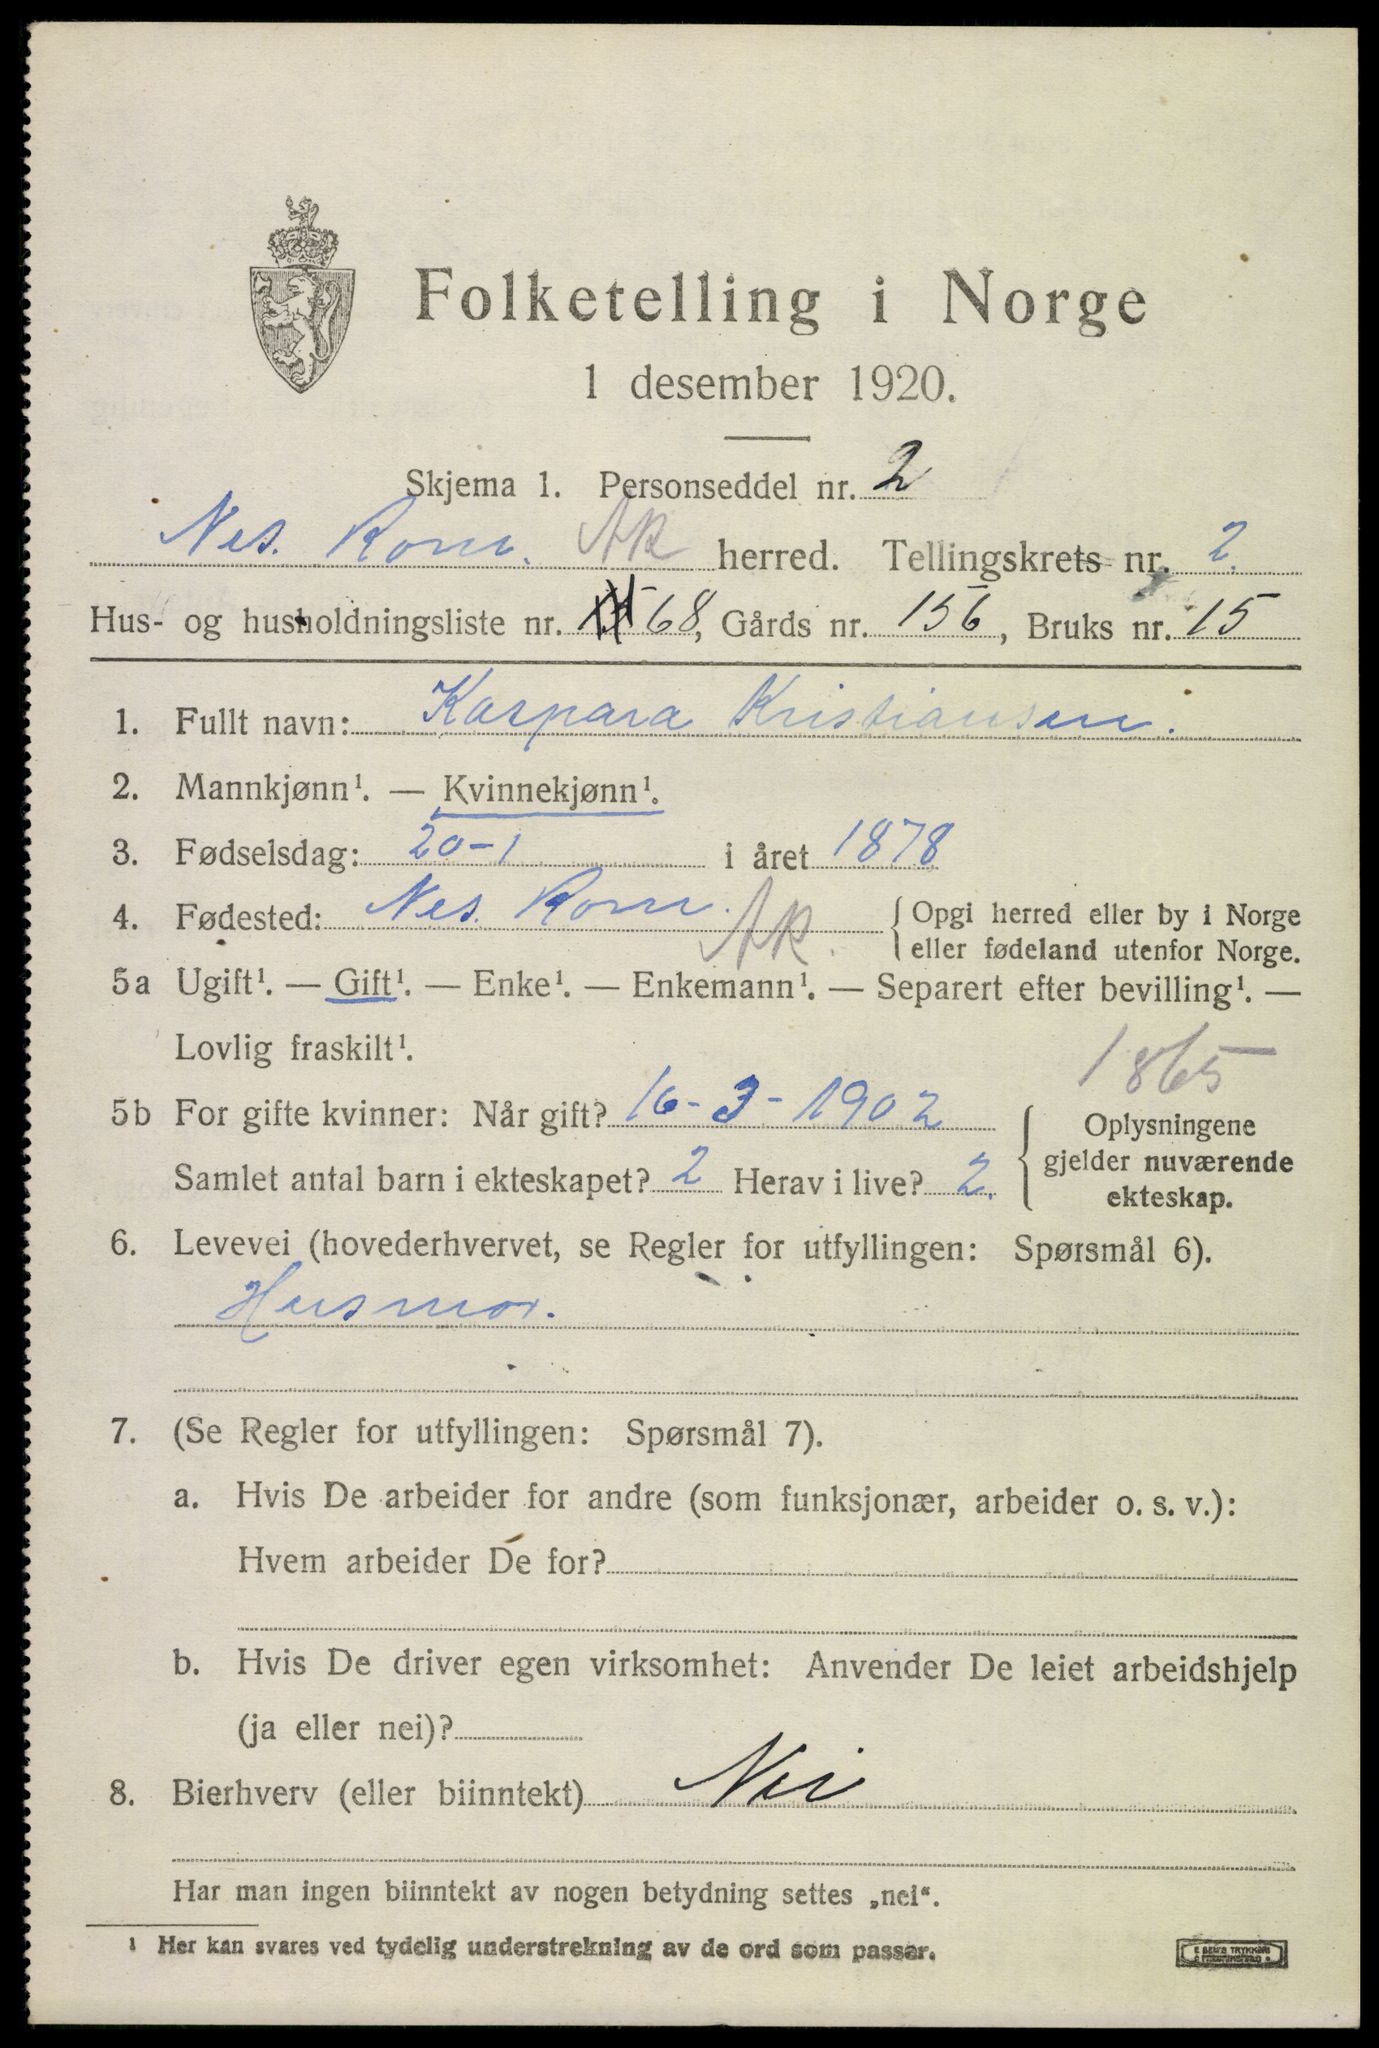 Folketelling i Norge
1 desember 1920.
Skjema 1. Personseddel nr. 2
Nes. Rom. Ak herred. Tellingskrets nr. 2.
Hus- og husholdningsliste nr. 68, Gårds nr. 156, Bruks nr. 15
1. Fullt navn: Kaspara Kristiansen.
2. Mannkjønn¹. — Kvinnekjønn¹.
3. Fødselsdag: 20-1 i året 1878
4. Fødested: Nes. Rom. Ak. Opgi herred eller by i Norge
eller fødeland utenfor Norge.
5a Ugift¹. — Gift¹. — Enke¹. — Enkemann¹. — Separert efter bevilling¹. —
Lovlig fraskilt¹.
1865
5b For gifte kvinner: Når gift? 16-3-1902 Oplysningene
gjelder nuværende
Samlet antal barn i ekteskapet? 2 Herav i live? 2.
ekteskap.
6. Levevei (hovederhvervet, se Regler for utfyllingen: Spørsmål 6).
Husmor.
7. (Se Regler for utfyllingen: Spørsmål 7).
a. Hvis De arbeider for andre (som funksjonær, arbeider o. s. v.):
Hvem arbeider De for?
b. Hvis De driver egen virksomhet: Anvender De leiet arbeidshjelp
(ja eller nei)?
8. Bierhverv (eller biinntekt) Nei
Har man ingen biinntekt av nogen betydning settes „nei“.
¹ Her kan svares ved tydelig understrekning av de ord som passer.